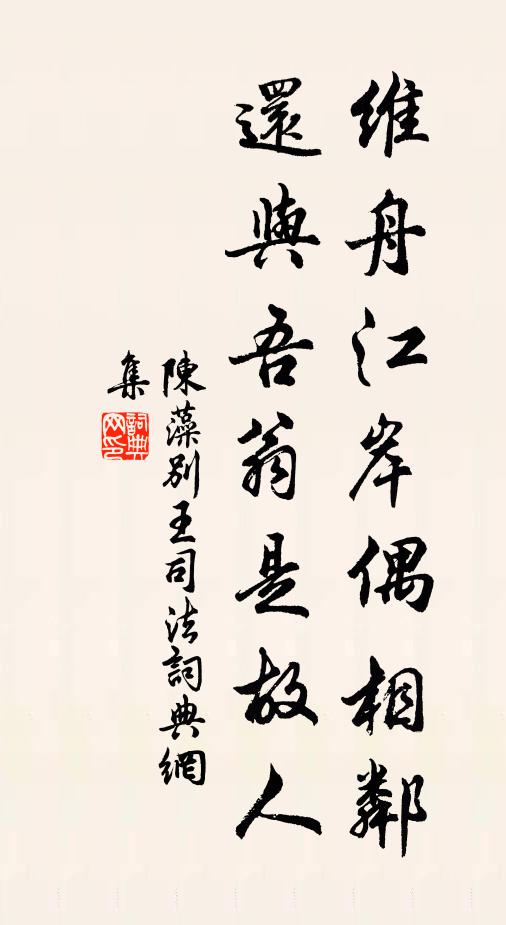 維舟江岸偶相鄰
還與吾翁是故人
陳藻別王司法詞典網
集
詞典網印